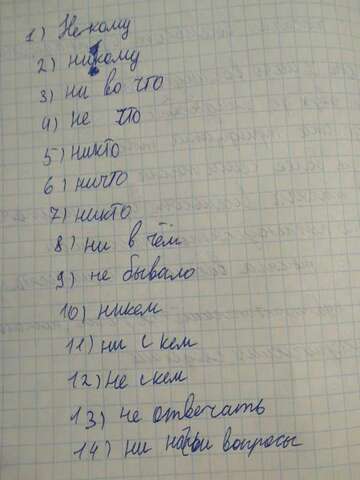 1) Не кому
2) никому
3) ни во что
4) не что
5) никто
6) ничто
7) никто
8) ни в чём
9) не бывало
10) никем
11) ни с кем
12) не с кем
13) не отвечать
14) ни на вопросы